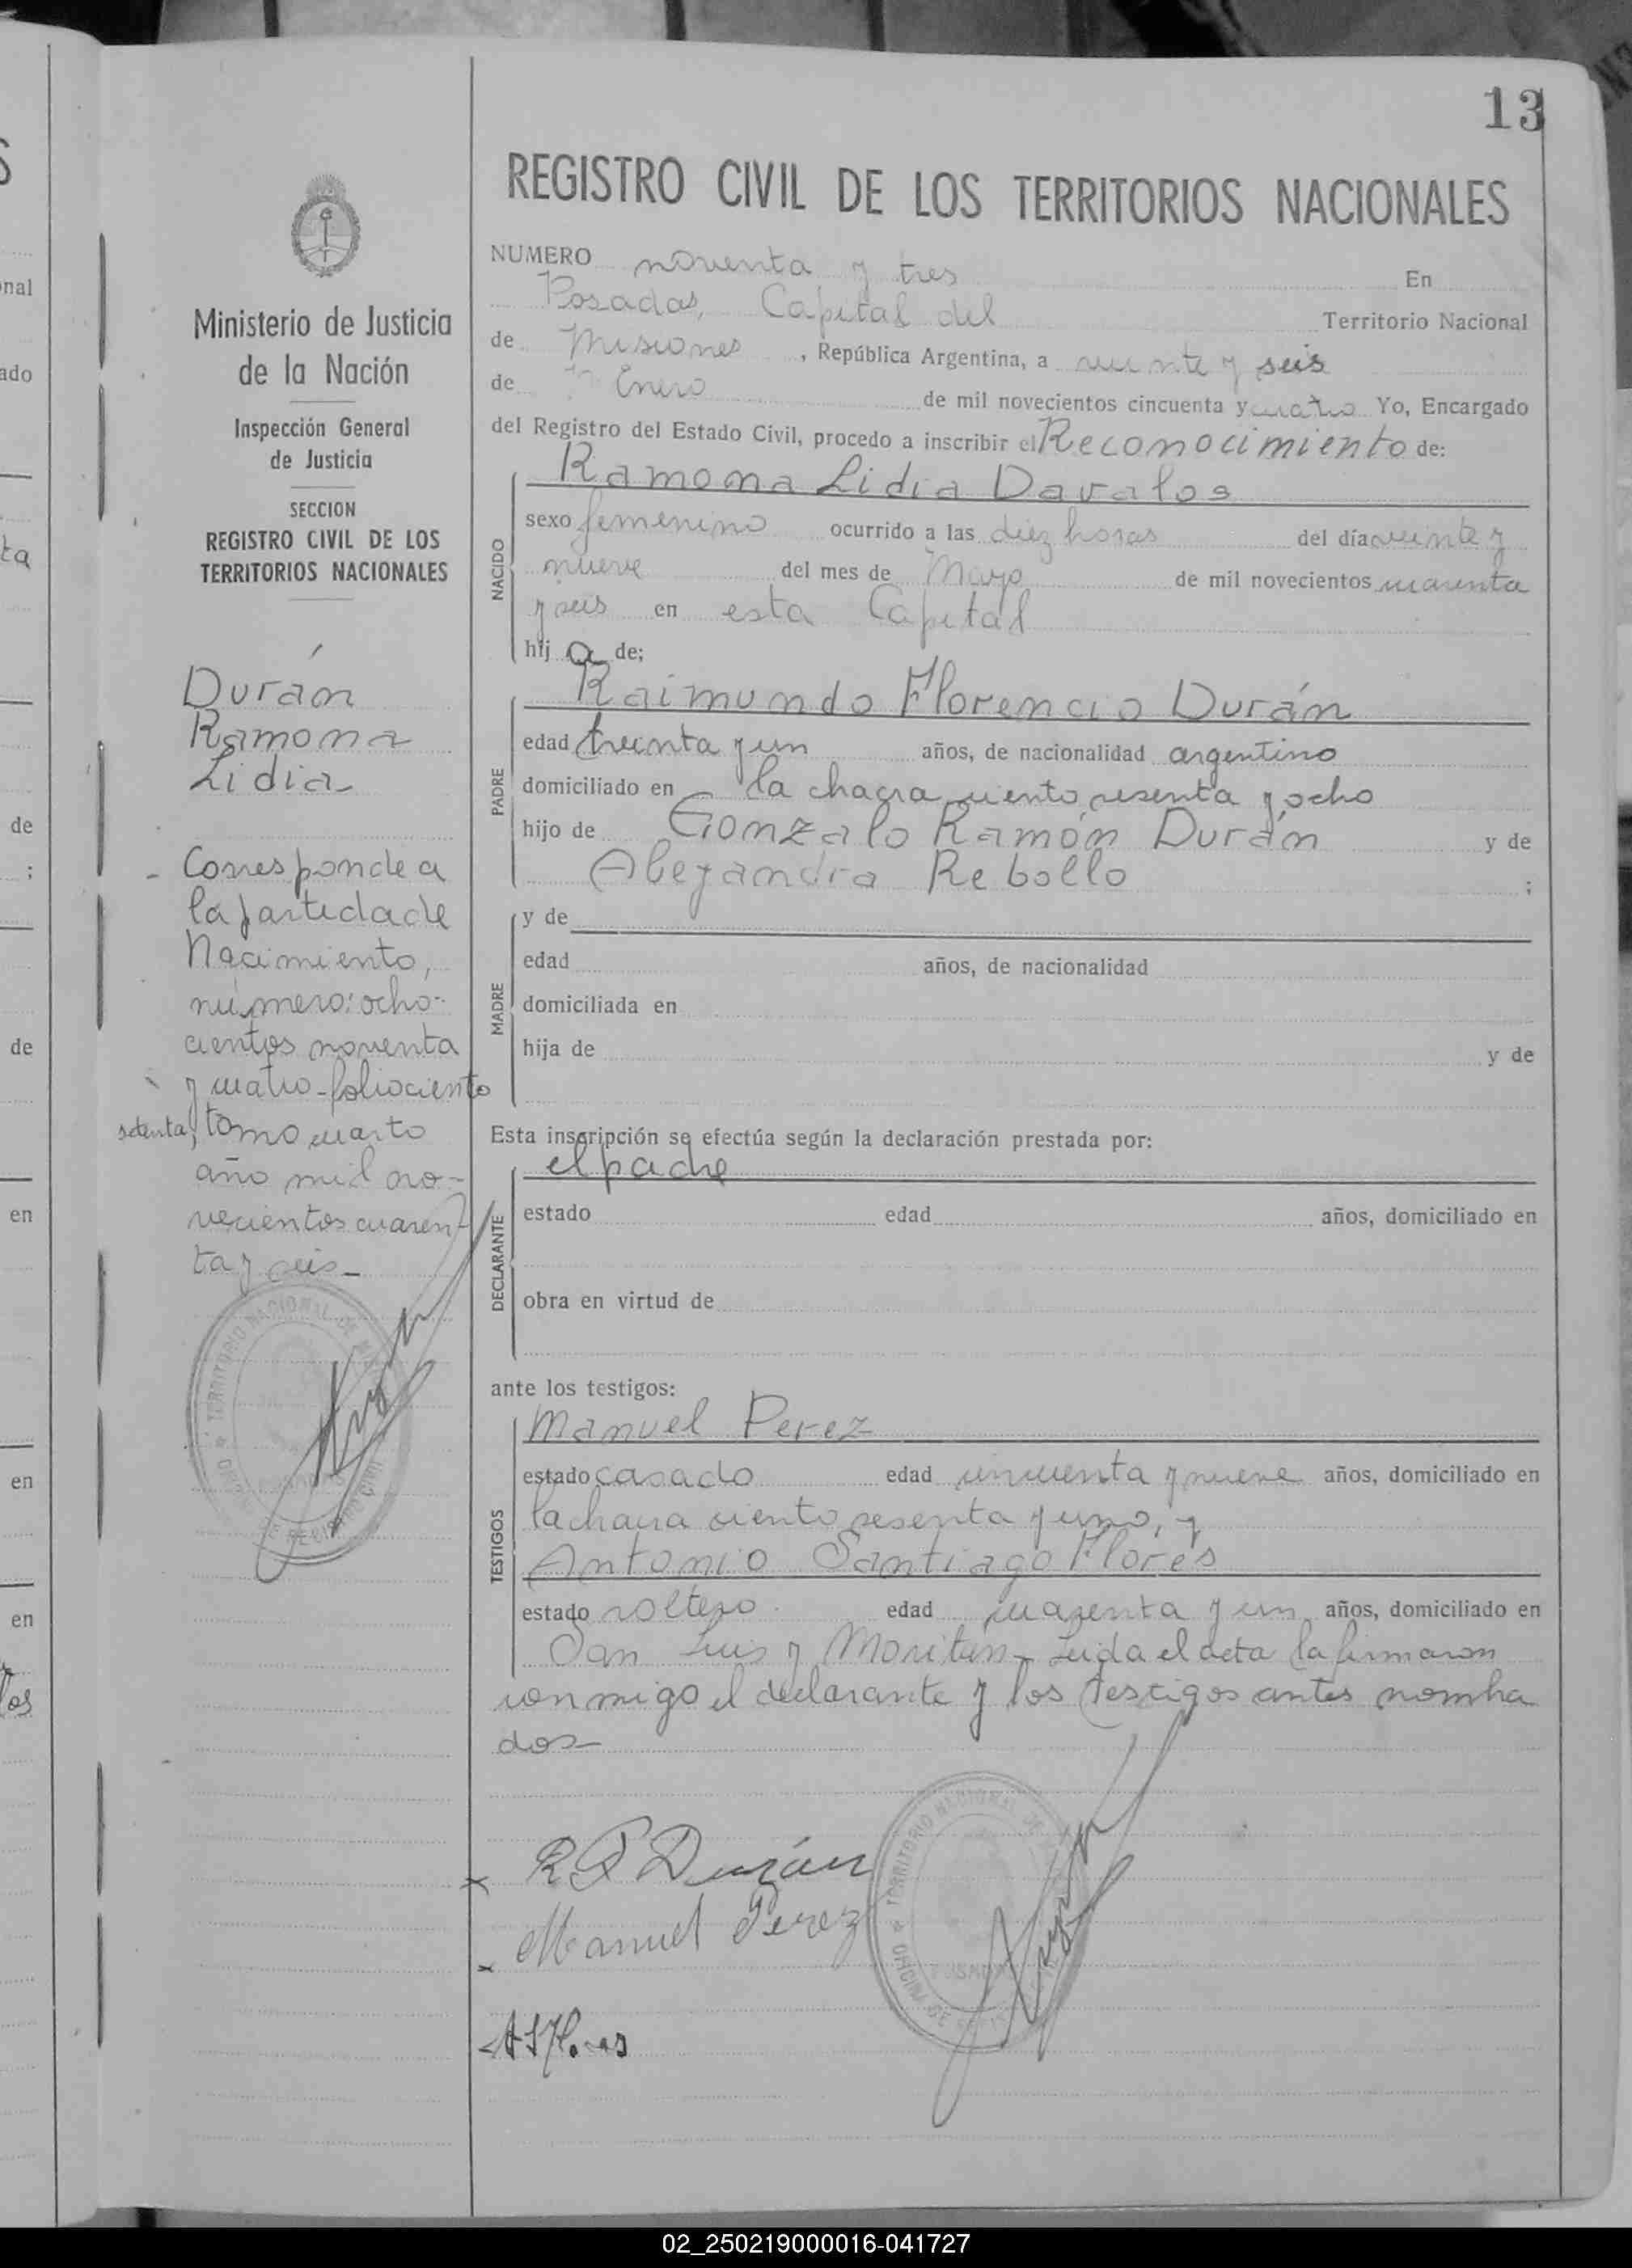 13
REGISTRO CIVIL DE LOS TERRITORIOS NACIONALES
NUMERO noventa y tres En
Posadas, Capital del Territorio Nacional
de Misiones, República Argentina, a veinte y seis
de Enero de mil novecientos cincuenta y cuatro Yo, Encargado
del Registro del Estado Civil, procedo a inscribir el Reconocimiento de:
Ramona Lidia Davalos
NACIDO
sexo femenino ocurrido a las diez horas del día veinte y
nueve del mes de Mayo de mil novecientos cuarenta
y seis en esta Capital
hija de;
Raimundo Florencio Durán
PADRE
edad treinta y un años, de nacionalidad argentino
domiciliado en la chacra ciento sesenta y ocho
hijo de Gonzalo Ramón Durán y de
Alejandra Rebollo ;
MADRE
y de
edad años, de nacionalidad
domiciliada en
hija de y de
Esta inscripción se efectúa según la declaración prestada por:
el padre
DECLARANTE
estado edad años, domiciliado en
obra en virtud de
ante los testigos:
TESTIGOS
Manuel Perez
estado casado edad cincuenta y nueve años, domiciliado en
la chacra ciento sesenta y uno, y
Antonio Santiago Flores
estado soltero edad cuarenta y un años, domiciliado en
San Luis y Moritan - Leida el acta la firmaron
conmigo el declarante y los testigos antes nombra
dos-
R F Durán
Manuel Perez
Ministerio de Justicia
de la Nación
Inspección General
de Justicia
SECCION
REGISTRO CIVIL DE LOS
TERRITORIOS NACIONALES
Durán
Ramona
Lidia
- Corresponde a
la partida de
Nacimiento,
número: ocho-
cientos noventa
y cuatro - folio ciento
setenta, tomo cuarto
año mil no-
vecientos cuaren-
ta y seis -
TERRITORIO NACIONAL DE
REGISTRO CIVIL
TERRITORIO NACIONAL DE
OFICINA DE
POSADAS
nal
ado
ta
de
;
de
en
en
en
los
02_250219000016-041727